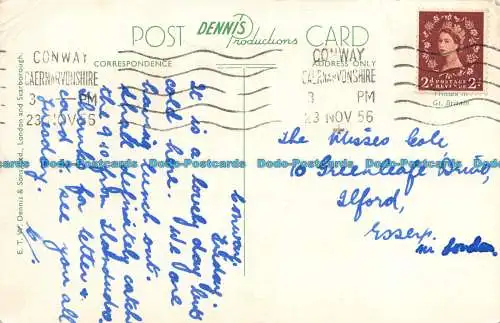 POST CARD
DENNIS
Productions
CORRESPONDENCE
ADDRESS ONLY
CONWAY
CAERNARVONSHIRE
3 PM
23 NOV 56
CONWAY
CAERNARVONSHIRE
3 PM
23 NOV 56
2D POSTAGE REVENUE 2D
Printed in
Gt. Britain
E. T. W. Dennis & Sons Ltd., London and Scarborough.
Conway.
Friday.
It is a lovely day but
cold here. We are
having lunch out.
Shall definitely catch
the 9.10 from Llandudno.
Thanks for letter &
card. See you all
Tuesday.
The Misses Cole,
10 Greenleafe Drive,
Ilford,
Essex.
nr London.
Dodo-Postcards Dodo-Postcards Dodo-Postcards Dodo-Postcards Dodo-Postcards